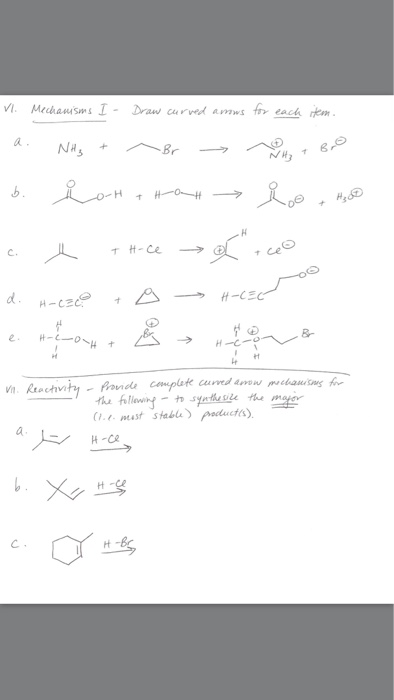 VI. Mechanisms I - Draw curved arrows for each item.
a. NH3 + Br → ⊕ NH3 + Br⊖
b. O O-H + H-O-H → O O⊖ + H3O⊕
c. + H-Cl → ⊕ H + Cl⊖
d. H-C≡C:⊖ + O → H-C≡C O⊖
e. H H-C-O-H H + Br⊕ → H H-C-O⊕ H H Br
VII. Reactivity - Provide complete curved arrow mechanisms for
the following - to synthesize the major
(i.e. most stable) product(s).
a. H-Cl →
b. H-Cl →
c. H-Br →